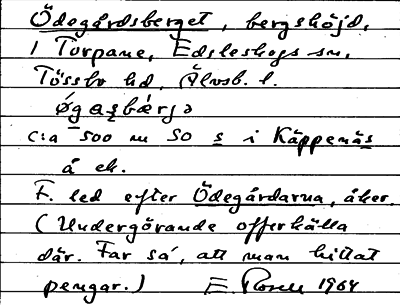 Ödegårdsberget, bergshöjd,
i Torpane, Edsleskogs sn,
Tössbo hd, Älvsb. l.
øgasbærjə
c:a 500 m SO s i Käppenäs
å ek.
F. led efter Ödegårdarna, åker.
(Undergörande offerkälla
där. Far sa, att man hittat
pengar.) E. Rosell 1964